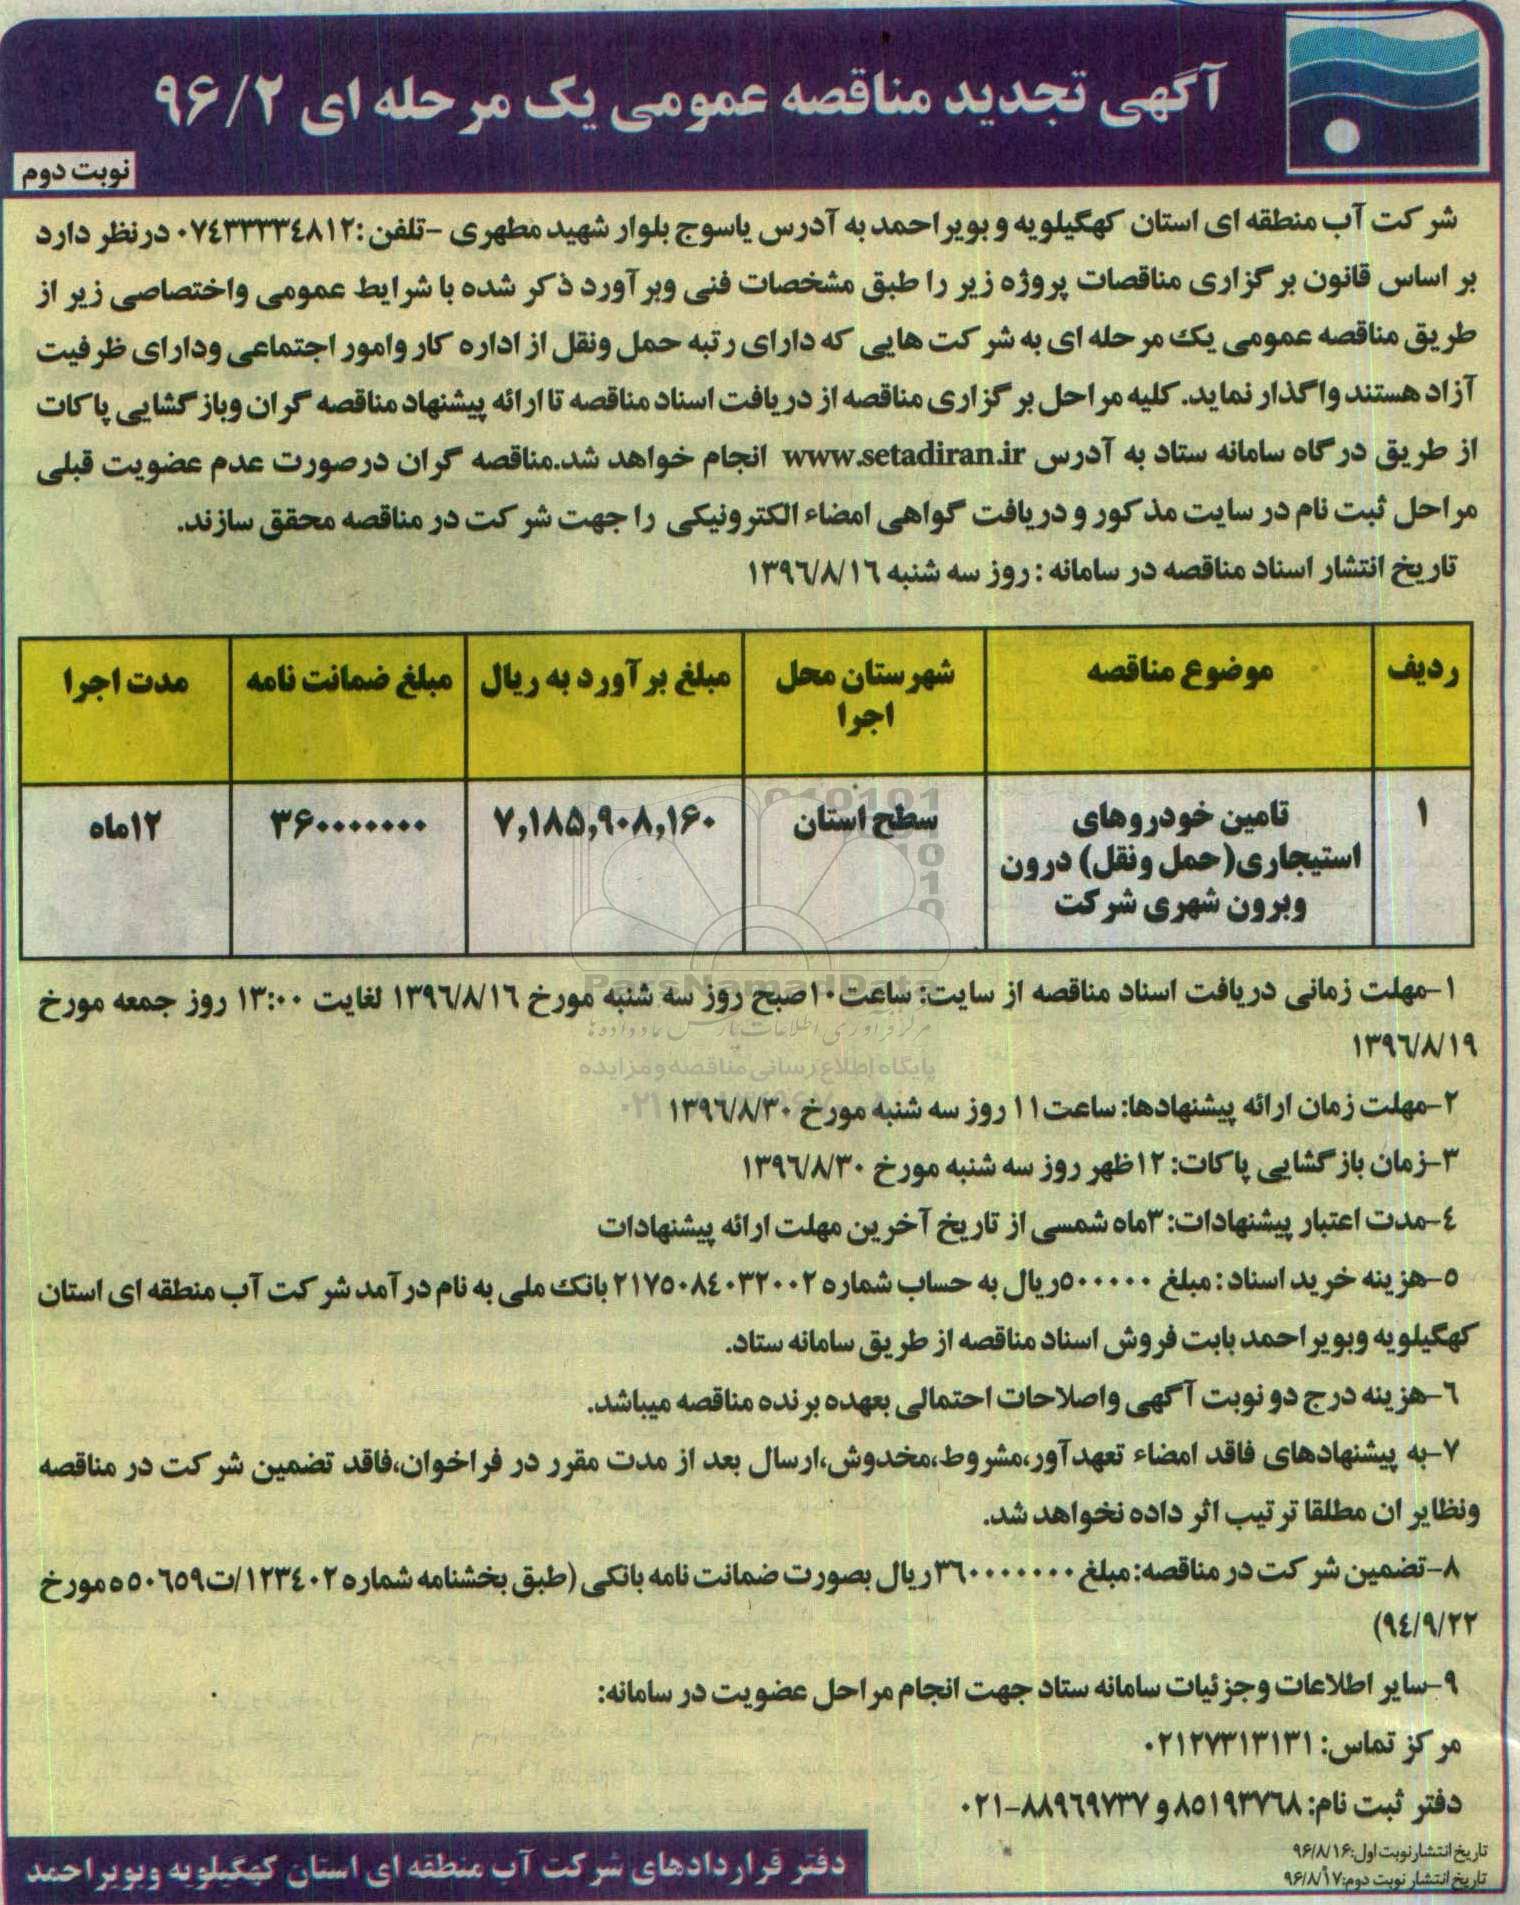 آگهی تجدید مناقصه عمومی یک مرحله ای ۹۶/۲
نوبت دوم
شرکت آب منطقه ای استان کهگیلویه و بویراحمد به آدرس یاسوج بلوار شهید مطهری -تلفن :۰۷٤۳۳۳۳٤۸۱۲ درنظر دارد
بر اساس قانون برگزاری مناقصات پروژه زیر را طبق مشخصات فنی وبرآورد ذکر شده با شرایط عمومی واختصاصی زیر از
طریق مناقصه عمومی یک مرحله ای به شرکت هایی که دارای رتبه حمل ونقل از اداره کار وامور اجتماعی ودارای ظرفیت
آزاد هستند واگذار نماید. کلیه مراحل برگزاری مناقصه از دریافت اسناد مناقصه تا ارائه پیشنهاد مناقصه گران وبازگشایی پاکات
از طریق درگاه سامانه ستاد به آدرس www.setadiran.ir انجام خواهد شد.مناقصه گران درصورت عدم عضویت قبلی
مراحل ثبت نام در سایت مذکور و دریافت گواهی امضاء الکترونیکی را جهت شرکت در مناقصه محقق سازند.
تاریخ انتشار اسناد مناقصه در سامانه : روز سه شنبه ۱۳۹٦/۸/۱٦
ردیف موضوع مناقصه شهرستان محل مبلغ برآورد به ریال مبلغ ضمانت نامه مدت اجرا
اجرا
۱ تامین خودروهای سطح استان ۷,۱۸۵,۹۰۸,۱۶۰ ۳۶۰۰۰۰۰۰۰ ۱۲ماه
استیجاری(حمل ونقل) درون
وبرون شهری شرکت
ParsNamadData
مرکز فرآوری اطلاعات پارس نماد داده ها
پایگاه اطلاع رسانی مناقصه و مزایده
۱-مهلت زمانی دریافت اسناد مناقصه از سایت: ساعت۱۰صبح روز سه شنبه مورخ ۱۳۹٦/۸/۱٦ لغایت ۱۳:۰۰ روز جمعه مورخ
۱۳۹٦/۸/۱۹
۲-مهلت زمان ارائه پیشنهادها: ساعت۱۱ روز سه شنبه مورخ ۱۳۹٦/۸/۳۰
۳-زمان بازگشایی پاکات: ۱۲ظهر روز سه شنبه مورخ ۱۳۹٦/۸/۳۰
٤-مدت اعتبار پیشنهادات: ۳ماه شمسی از تاریخ آخرین مهلت ارائه پیشنهادات
۵-هزینه خرید اسناد : مبلغ ۵۰۰۰۰۰ریال به حساب شماره ۲۱۷۵۰۸٤۰۳۲۰۰۲ بانک ملی به نام درآمد شرکت آب منطقه ای استان
کهگیلویه وبویراحمد بابت فروش اسناد مناقصه از طریق سامانه ستاد.
٦-هزینه درج دو نوبت آگهی واصلاحات احتمالی بعهده برنده مناقصه میباشد.
۷-به پیشنهادهای فاقد امضاء تعهدآور،مشروط،مخدوش،ارسال بعد از مدت مقرر در فراخوان،فاقد تضمین شرکت در مناقصه
ونظایر ان مطلقا ترتیب اثر داده نخواهد شد.
۸-تضمین شرکت در مناقصه: مبلغ ۳٦۰۰۰۰۰۰۰ریال بصورت ضمانت نامه بانکی (طبق بخشنامه شماره ۱۲۳٤۰۲/ت۵۰٦۵۹ه مورخ
۹٤/۹/۲۲)
۹-سایر اطلاعات وجزئیات سامانه ستاد جهت انجام مراحل عضویت در سامانه:
مرکز تماس: ۰۲۱۲۷۳۱۳۱۳۱
دفتر ثبت نام: ۸۵۱۹۳۷٦۸ و ۸۸۹٦۹۷۳۷-۰۲۱
تاریخ انتشار نوبت اول:۹۶/۸/۱۶
تاریخ انتشار نوبت دوم:۹۶/۸/۱۷
دفتر قراردادهای شرکت آب منطقه ای استان کهگیلویه وبویراحمد